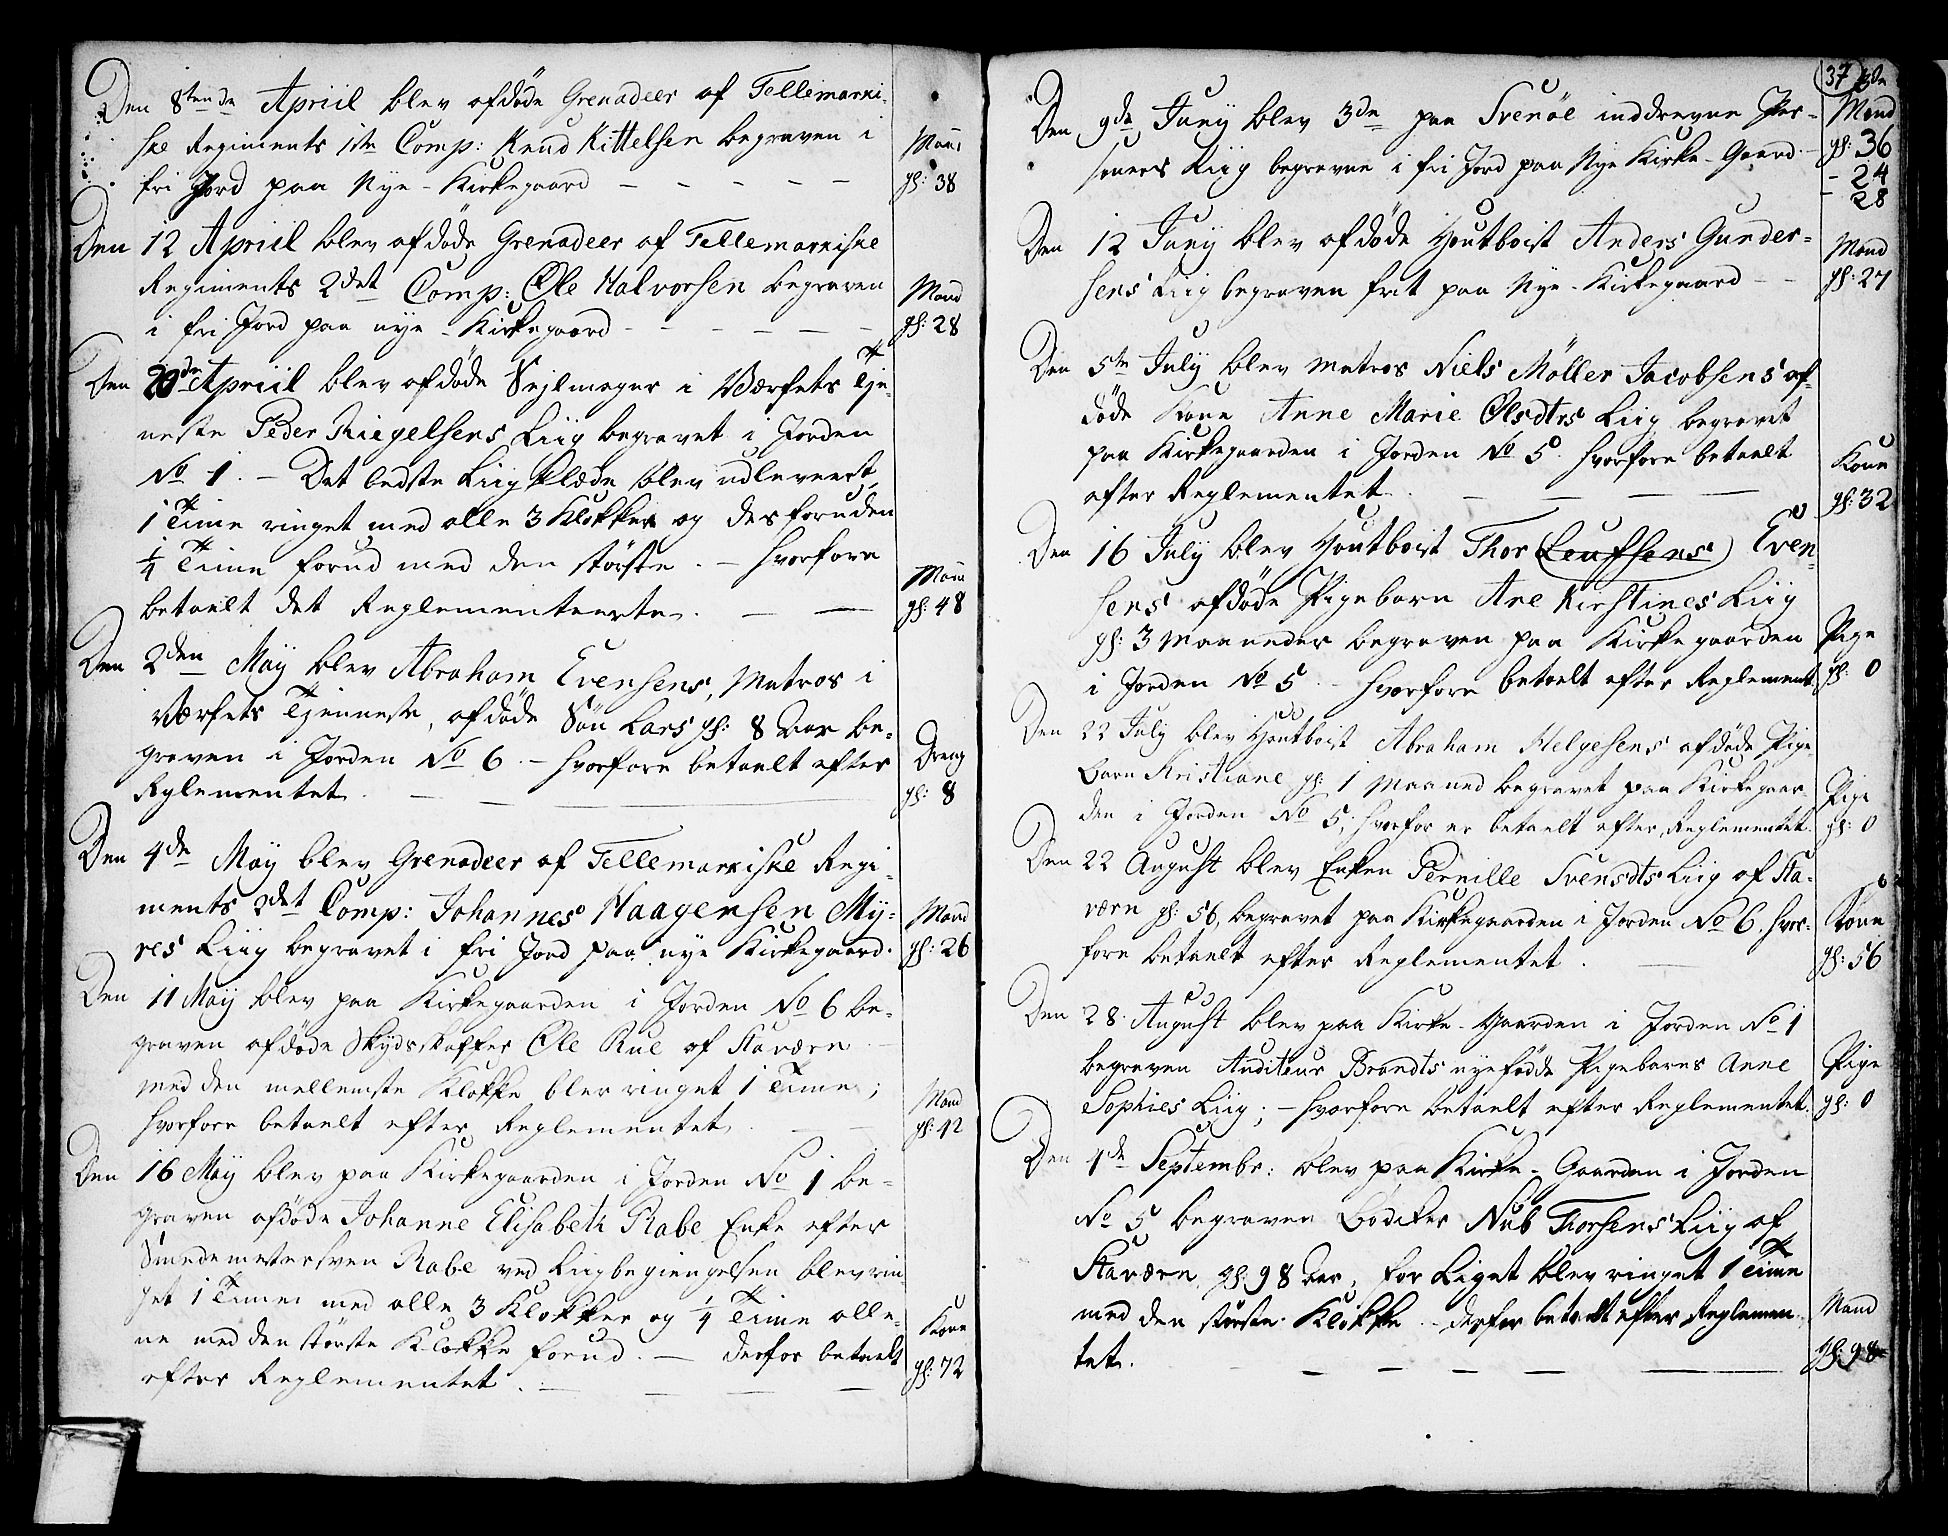 Den 8tende Apriil blev afdöde Grenadeer af Tellemarki-
ske Regiments 1ste Comp: Knud Kittelsen begraven i
fri Jord paa Nye-Kirkegaard - - - - -
Mand
gl: 38
Den 12 Apriil blev afdöde Grenadeer af Tellemarkiske
Regiments 2det Comp: Ole Halvorsen begraven
i fri Jord paa nye-Kirkegaard - - - - -
Mand
gl: 28
Den 20de Apriil blev afdöde Sejlmager i Værfets Tje-
neste Peder Riegelsens Liig begravet i Jorden
No 1. - Det bedste Liig Klæde blev udleveert,
1 Time ringet med alle 3 Klokker og desforuden
1/4 Time forud med den störste. - hvorfore
betaelt det Reglementeerte. - -
Mand
gl: 48
Den 2den May blev Abraham Evensens, Matros i
Værfets Tjenneste, afdöde Sön Lars gl: 8 Aar be-
graven i Jorden No 6. - hvorfore betaelt efter
Reglementet. - - -
Dreng
gl: 8
Den 4de May blev Grenadeer af Tellemarkiske Regi-
ments 2det Comp: Johannes Haagensen My-
res Liig begravet i fri Jord paa nye Kirkegaard.
Mand
gl: 26
Den 11 May blev paa Kirkegaarden i Jorden No 6 be-
graven afdöde Skydsskaffer Ole Rue af Staværn -
med den mellemste Klokke blev ringet 1 Time;
hvorfore betaelt efter Reglementet. - -
Mand
gl: 42
Den 16 May blev paa Kirkegaarden i Jorden No 1 be-
graven afdöde Johanne Elisabeth Rabe Enke efter
Smedemestersven Rabe ved Liigbegiengelsen blev rin
get 1 Time med alle 3 Klokker og 1/4 Time alle-
ne med den störste Klokke forud. - derfor betaelt
efter Reglementet. - - -
Kone
gl: 72
37
Den 9de Juny blev 3de paa Svenöe inddrevne Per-
soners Liig begravne i fri Jord paa Nye Kirke-Gaard. -
3de
Mand
gl: 36
- 24
- 28
Den 12 Juny blev afdöde Houtboist Anders Gunder-
sens Liig begraven frit paa Nye-Kirkegaard - -
Mand
gl: 27
Den 5te July blev Matros Niels Möller Jacobsens af-
döde Kone Anne Marie Olsdtrs Liig begravet
paa Kirkegaarden i Jorden No 5. hvorfore betaelt
efter Reglementet. - - - -
Kone
gl: 32
Den 16 July blev Houtboist Thor (Leufsens) Even
sens afdöde Pigebarn Ane Kirstines Liig
gl: 3 Maaneder begraven paa Kirkegaarden
i Jorden No 5. - hvorfore betaelt efter Reglement.
Pige
gl: 0
Den 22 July blev Houtboist Abraham Helgesens afdöde Pige
Barn Kristiane gl: 1 Maaned begravet paa Kirkegaar
den i Jorden No 5; hvorfor er betaelt efter Reglementet.
Pige
gl: 0
Den 22 August blev Enken Pernille Svensdts Liig af Sta-
værn gl: 56, begravet paa Kirkegaarden i Jorden No 6. hvor-
fore betaelt efter Reglementet. -
Kone
gl: 56
Den 28. August blev paa Kirke-Gaarden i Jorden No 1
begraven Auditeur Brandts nyefödde Pigebarns Anne
Sophies Liig; - hvorfore betaelt efter Reglementet.
Pige
gl: 0
Den 4de Septembr: blev paa Kirke-Gaarden i Jorden
No 5 begraven Bödiker Nub Thorsens Liig af
Staværn, gl: 98 Aar, for Liget blev ringet 1 Time
med den störste Klokke. - derfor betaelt efter Reglemen-
tet. - - - - -
Mand
gl: 98